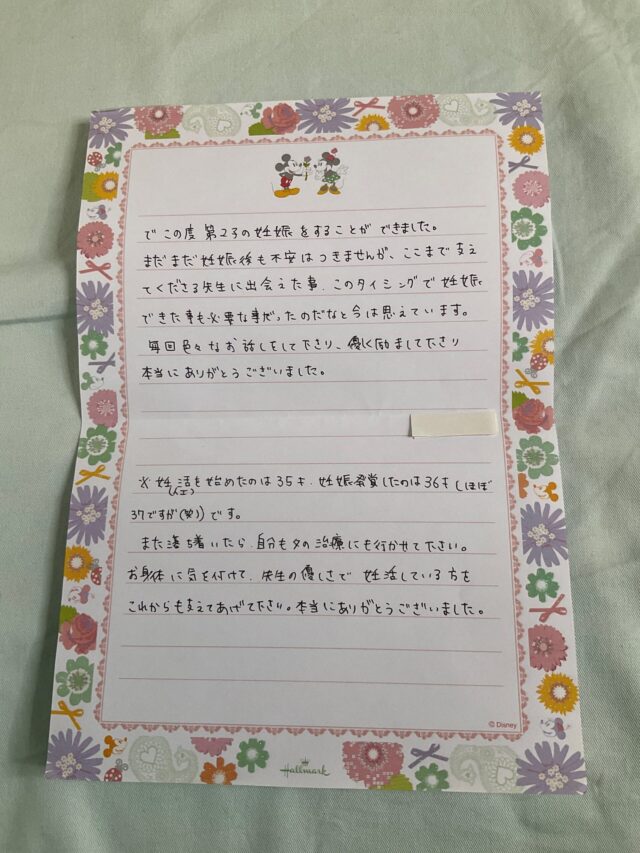 でこの度 第2子の妊娠をすることができました。
まだまだ妊娠後も不安はつきませんが、ここまで支え
てくださる先生に出会えた事、このタイミングで妊娠
できた事も必要な事だったのだなと今は思えています。
毎回色々なお話しをして下さり、優しく励まして下さり
本当にありがとうございました。
※妊活を始めたのは35才、妊娠発覚したのは36才(ほぼ
(人工)
37ですが(笑))です。
また落ち着いたら、自分も夕の治療にも行かせて下さい。
お身体に気を付けて、先生の優しさで 妊活している方を
これからも支えてあげて下さい。本当にありがとうございました。
© Disney
Hallmark